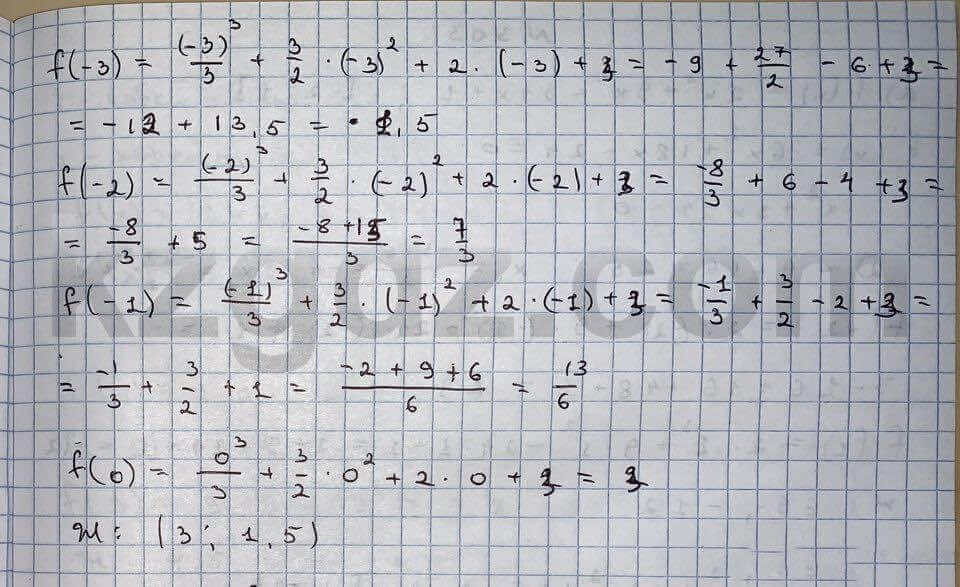 f(-3) = (-3)³/3 + 3/2 · (-3)² + 2 · (-3) + 3 = -9 + 27/2 - 6 + 3 =
= -12 + 13,5 = 1,5
f(-2) = (-2)³/3 + 3/2 · (-2)² + 2 · (-2) + 3 = -8/3 + 6 - 4 + 3 =
= -8/3 + 5 = (-8 + 15)/3 = 7/3
kzgdz.com
f(-1) = (-1)³/3 + 3/2 · (-1)² + 2 · (-1) + 3 = -1/3 + 3/2 - 2 + 3 =
= -1/3 + 3/2 + 1 = (-2 + 9 + 6)/6 = 13/6
f(0) = 0³/3 + 3/2 · 0² + 2 · 0 + 3 = 3
(3; 1,5)